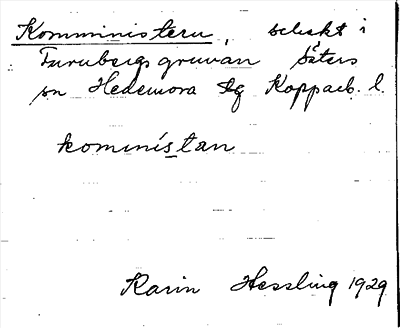 Komministern, beläkt i
Turnbergsgruvan Säters
sn Hedemora tg Kopparb. l.
kommiństan
Karin Hessling 1929